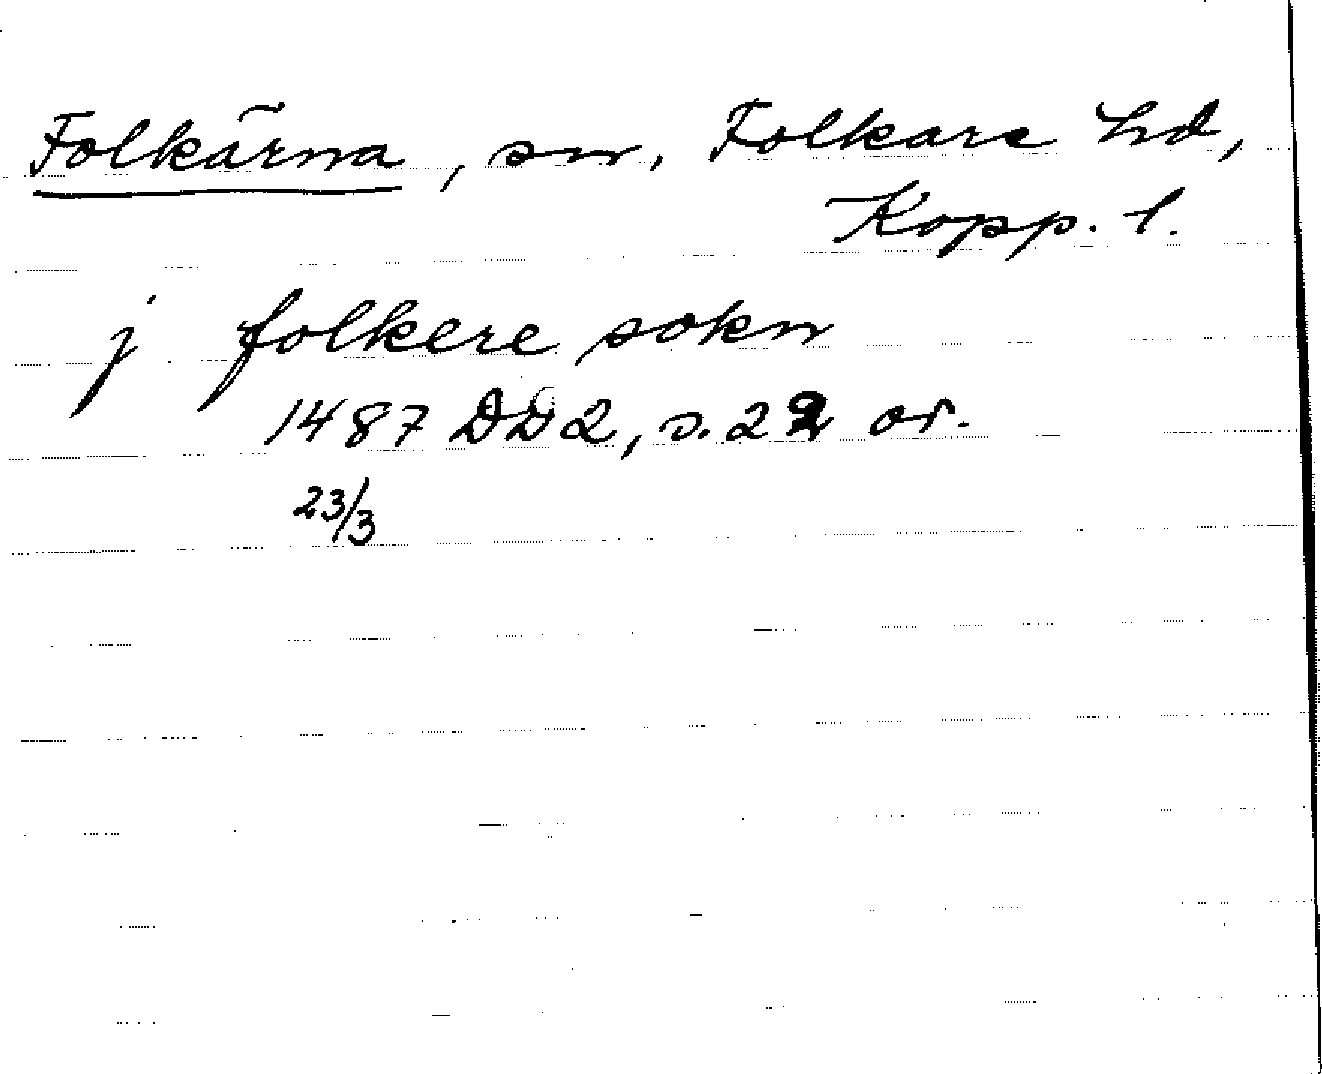 Folkärna, sn, Folkare hd,
Kopp. l.
j folkere sokn
1487 DD 2, s. 22 or.
23/3